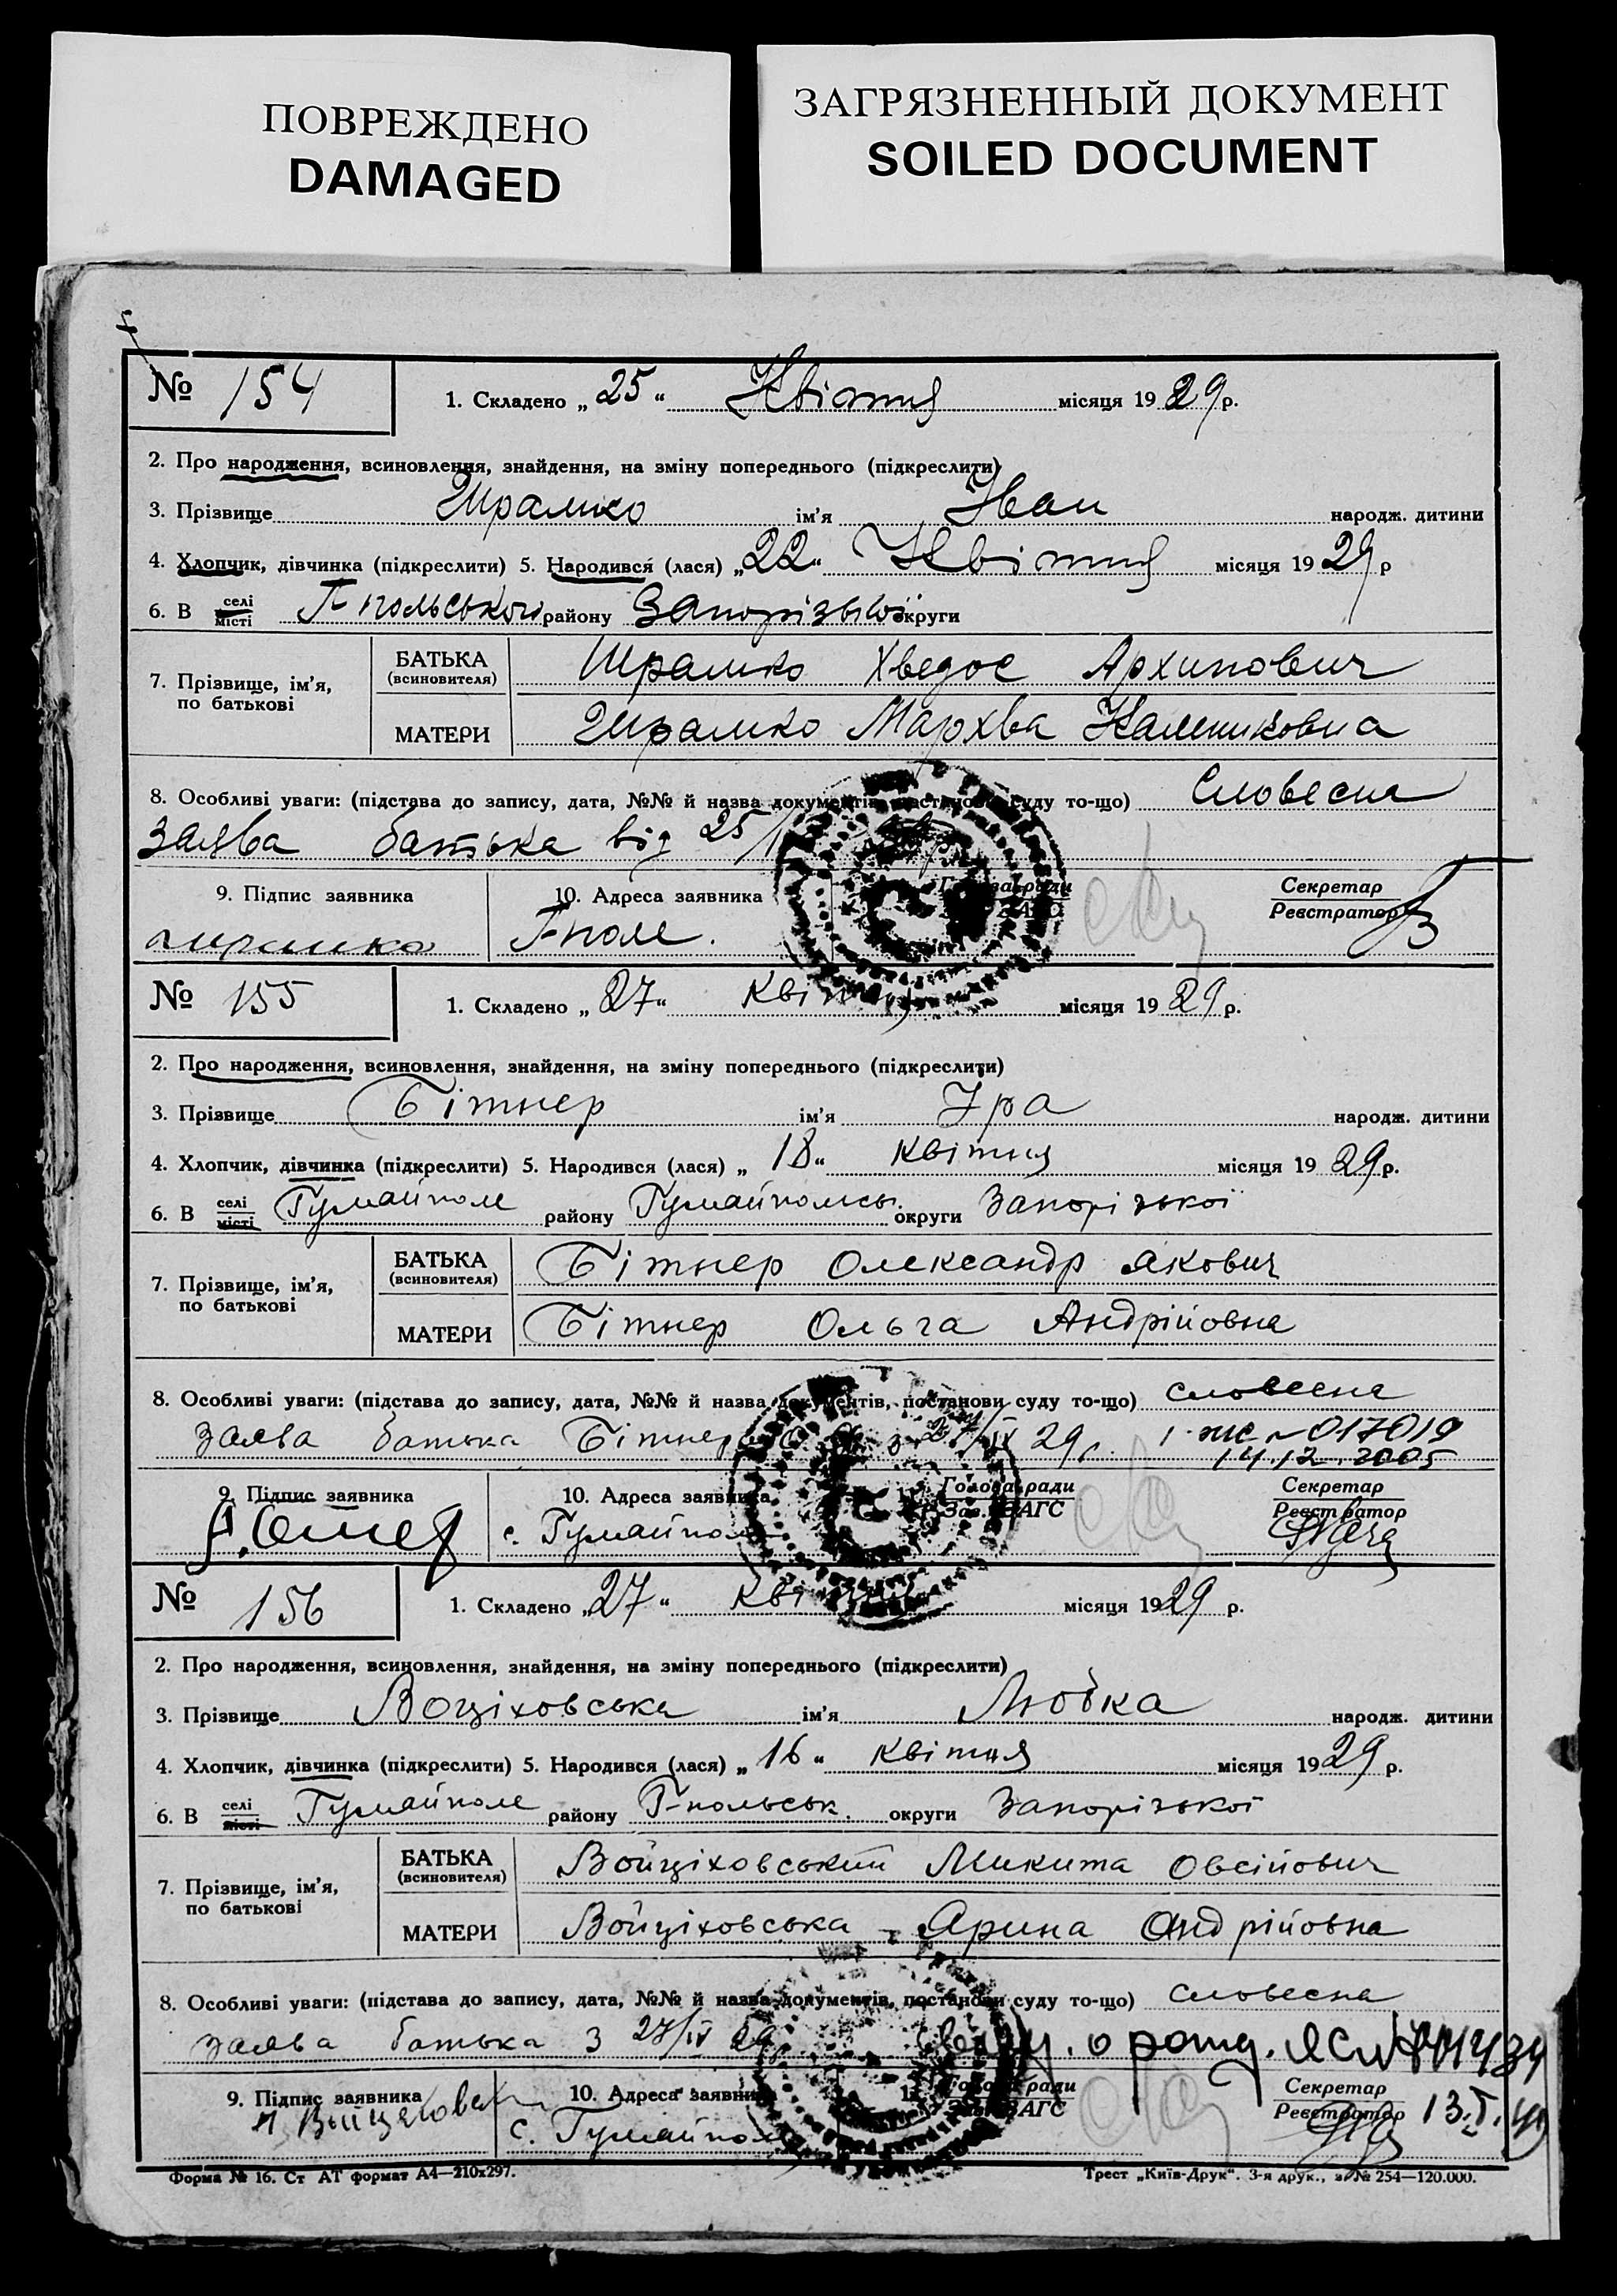 ПОВРЕЖДЕНО
DAMAGED
ЗАГРЯЗНЕННЫЙ ДОКУМЕНТ
SOILED DOCUMENT
№ 154 1. Складено „25“ Квітня місяця 1929 р.
2. Про народження, всиновлення, знайдення, на зміну попереднього (підкреслити)
3. Прізвище Шрамко ім'я Іван народж. дитини
4. Хлопчик, дівчинка (підкреслити) 5. Народився (лася) „22“ Квітня місяця 1929 р
6. В селі місті Г-польського району Запорізької округи
7. Прізвище, ім'я, по батькові
БАТЬКА (всиновителя) Шрамко Хведос Архипович
МАТЕРИ Шрамко Мархва Калениковна
8. Особливі уваги: (підстава до запису, дата, №№ й назва документів, постанови суду то-що) Словесна
заява батька від 25/
9. Підпис заявника 10. Адреса заявника Голова ради ЗАГС Секретар Реєстратор
Шрамко Г-поле.
№ 155 1. Складено „27“ Квітня місяця 1929 р.
2. Про народження, всиновлення, знайдення, на зміну попереднього (підкреслити)
3. Прізвище Бітнер ім'я Іра народж. дитини
4. Хлопчик, дівчинка (підкреслити) 5. Народився (лася) „18“ квітня місяця 1929 р.
6. В селі місті Гумайполе району Гумайпольсь. округи Запорізької
7. Прізвище, ім'я, по батькові
БАТЬКА (всиновителя) Бітнер Олександр Якович
МАТЕРИ Бітнер Ольга Андрійовна
8. Особливі уваги: (підстава до запису, дата, №№ й назва документів, постанови суду то-що) словесна
заява батька Бітнер з 27/IV 29 р. 017019
14.12.2005
9. Підпис заявника 10. Адреса заявника Голова ради Зав. ЗАГС Секретар Реєстратор
с. Гумайполе
№ 156 1. Складено „27“ квітня місяця 1929 р.
2. Про народження, всиновлення, знайдення, на зміну попереднього (підкреслити)
3. Прізвище Воціховська ім'я Любка народж. дитини
4. Хлопчик, дівчинка (підкреслити) 5. Народився (лася) „16“ квітня місяця 1929 р.
6. В селі місті Гумайполе району Г-польськ. округи Запорізької
7. Прізвище, ім'я, по батькові
БАТЬКА (всиновителя) Войціховський Микита Овсійович
МАТЕРИ Войціховська Арина Андрійовна
8. Особливі уваги: (підстава до запису, дата, №№ й назва документів, постанови суду то-що) словесна
заява батька з 27/IV 29 свед. о рожд.
9. Підпис заявника 10. Адреса заявника Голова ради Зав. ЗАГС Секретар Реєстратор
с. Гумайполе
Форма № 16. Ст АТ формат А4—210x297. Трест „Київ-Друк“. 3-я друк., з. № 254—120.000.